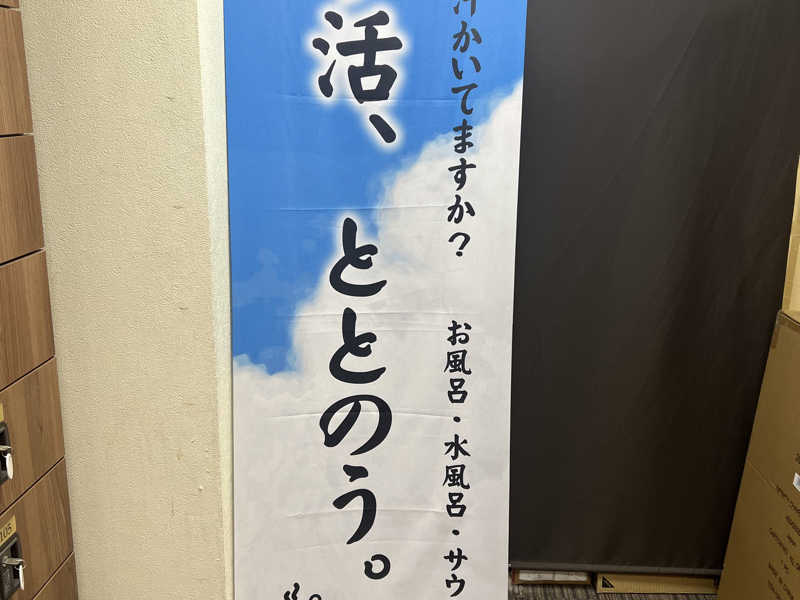 汗かいてますか?　お風呂・水風呂・サウ
活、ととのう。
105